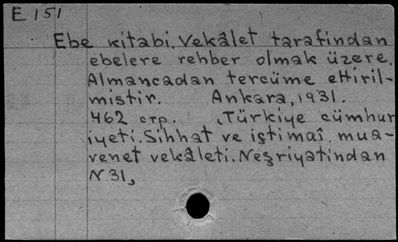 E 151
Ebe kitabi. Vekâlet tarafindan
ebelere rehber olmak üzere.
Almancadan tercüme ettiril-
mistir. Ankara, 1931.
462 стр. „Türkiye cümhur
iyeti. Sihhat ve içtimaî. mua-
venet vekâleti. Neşriyatindan
N 31„